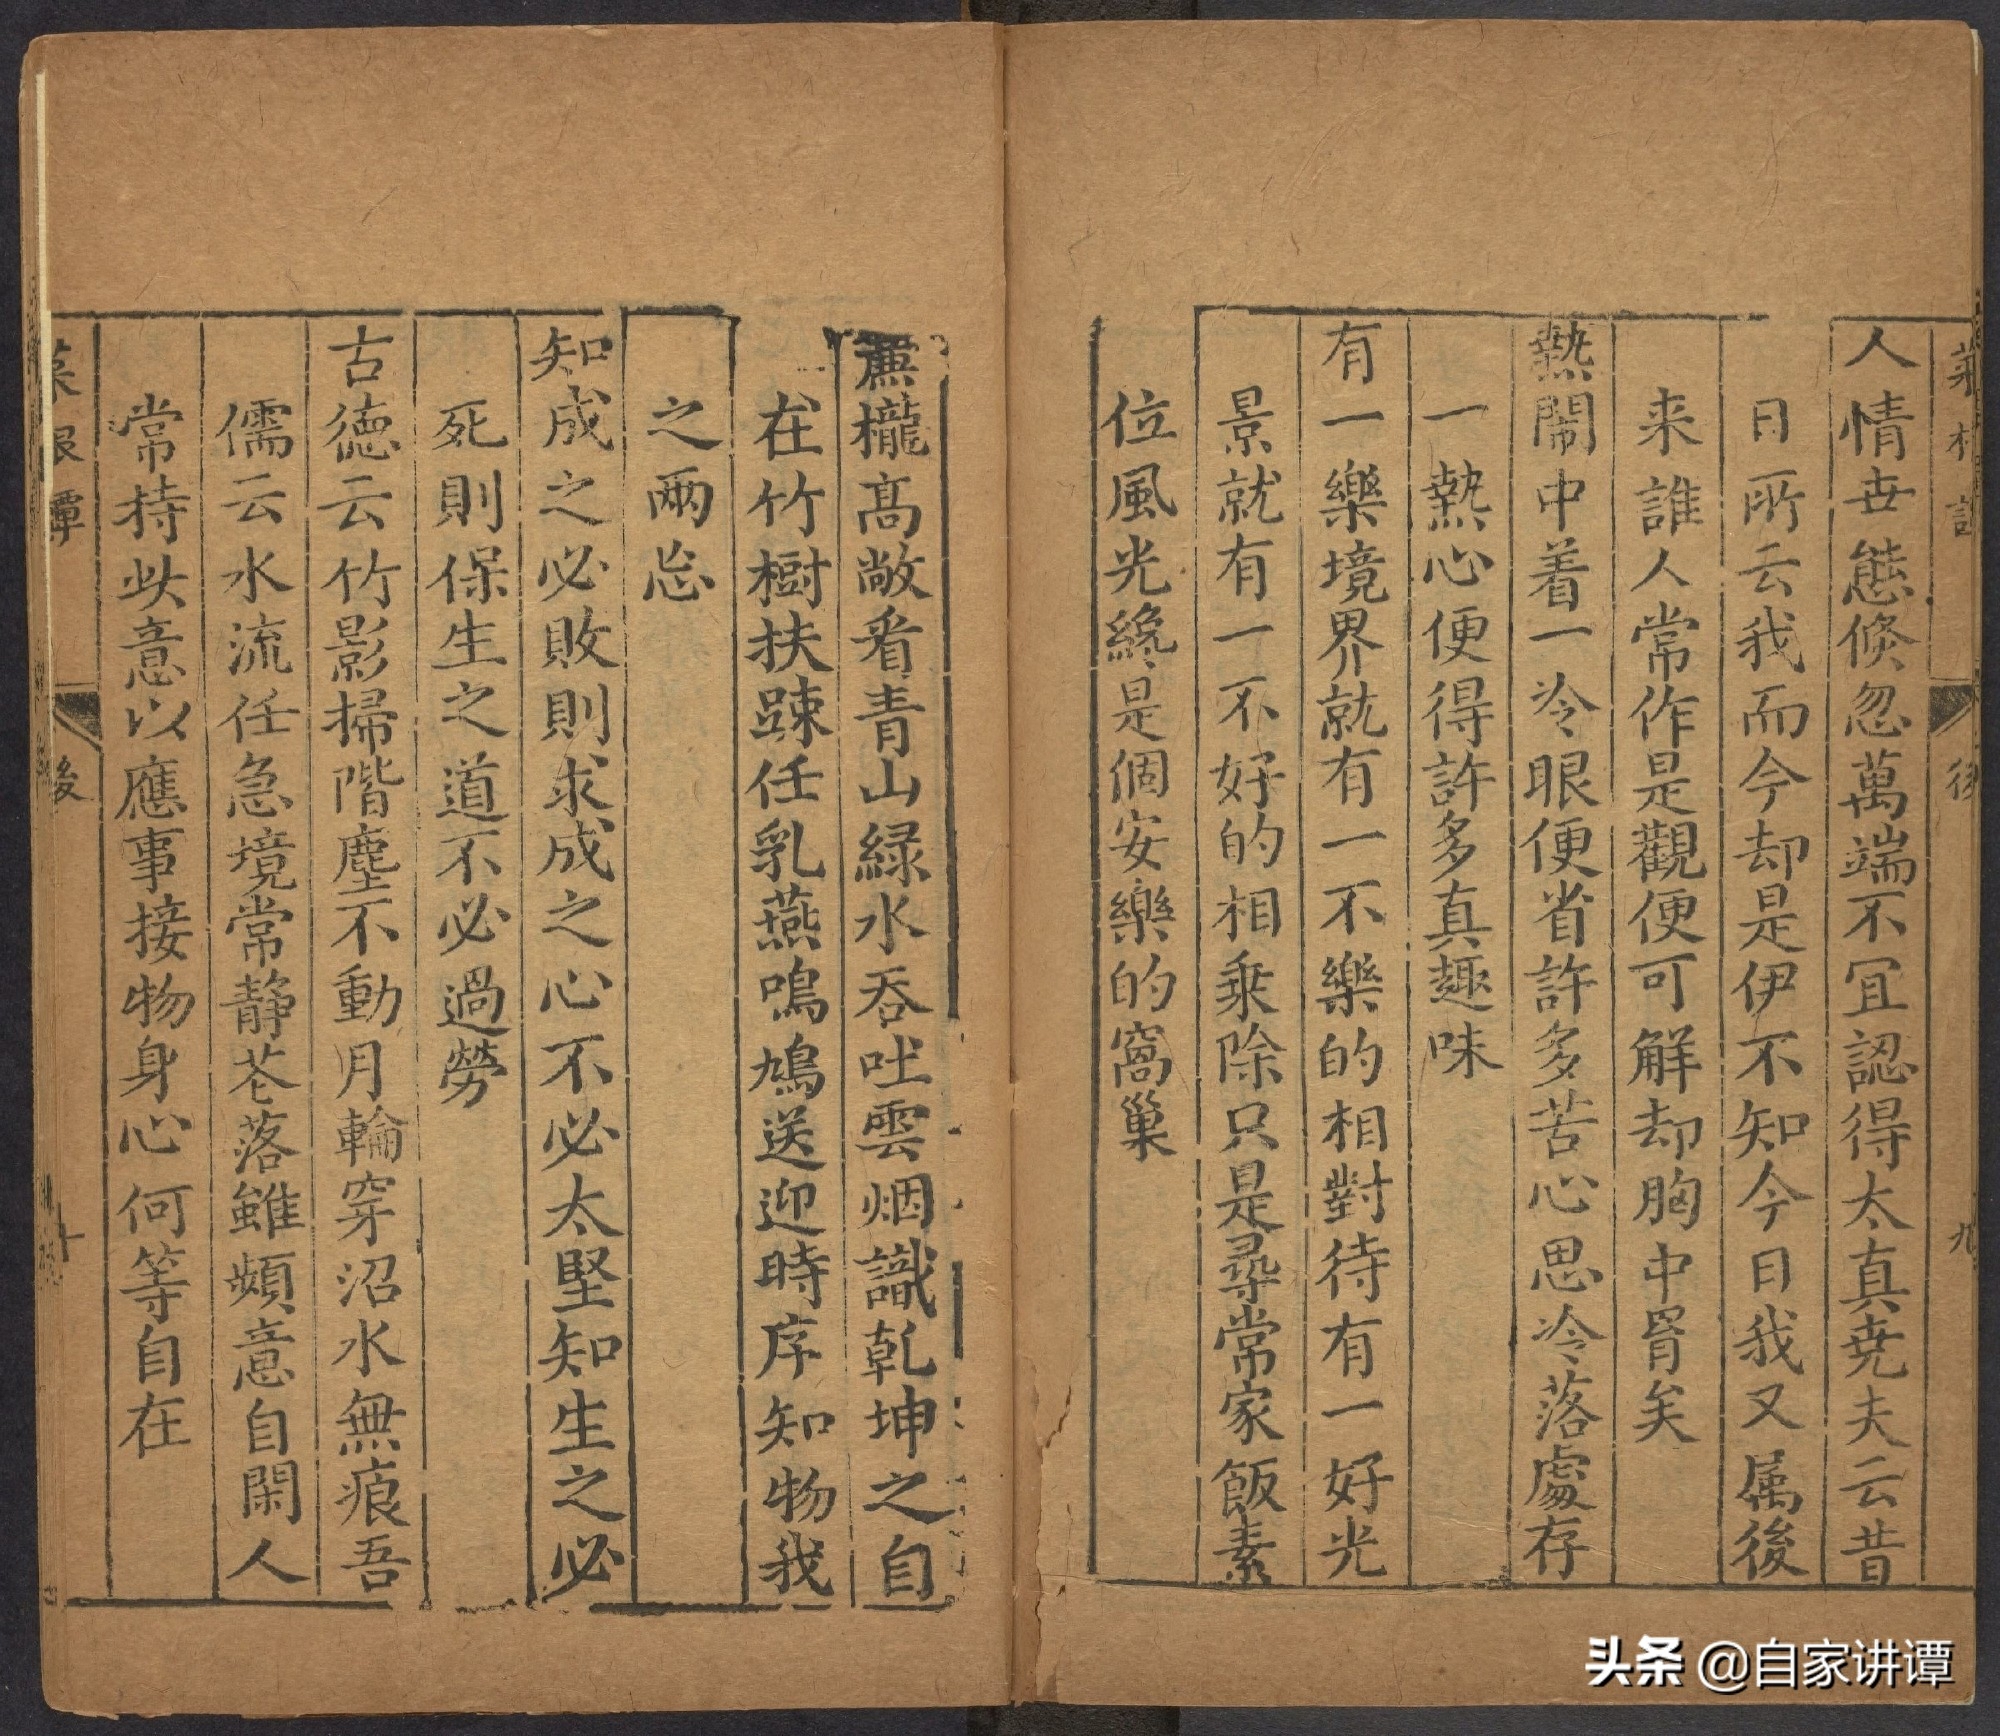 人情世態倏忽萬端不宜認得太真堯夫云昔
日所云我而今却是伊不知今日我又属後
来誰人常作是觀便可解却胸中罥矣
熱閙中着一冷眼便省許多苦心思冷落處存
一熱心便得許多真趣味
有一樂境界就有一不樂的相對待有一好光
景就有一不好的相乗除只是尋常家飯素
位風光纔是個安樂的窩巢
櫳高敞看青山綠水吞吐雲烟識乹坤之自
在竹樹扶踈任乳燕鳴鳩送迎時序知物我
之兩忘
知成之必敗則求成之心不必太堅知生之必
死則保生之道不必過勞
古德云竹影掃階塵不動月輪穿沼水無痕吾
儒云水流任急境常静花落雖頻意自閑人
常持此意以應事接物身心何等自在
後
頭条 @自家讲谭